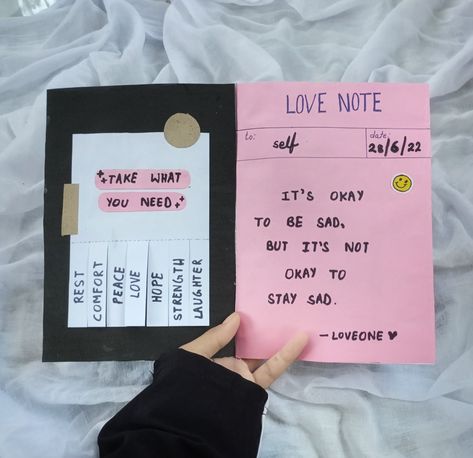 TAKE WHAT
YOU NEED
REST
COMFORT
PEACE
LOVE
HOPE
STRENGTH
LAUGHTER
LOVE NOTE
to: self
date 28/6/22
IT'S OKAY
TO BE SAD,
BUT IT'S NOT
OKAY TO
STAY SAD.
—LOVEONE ♥